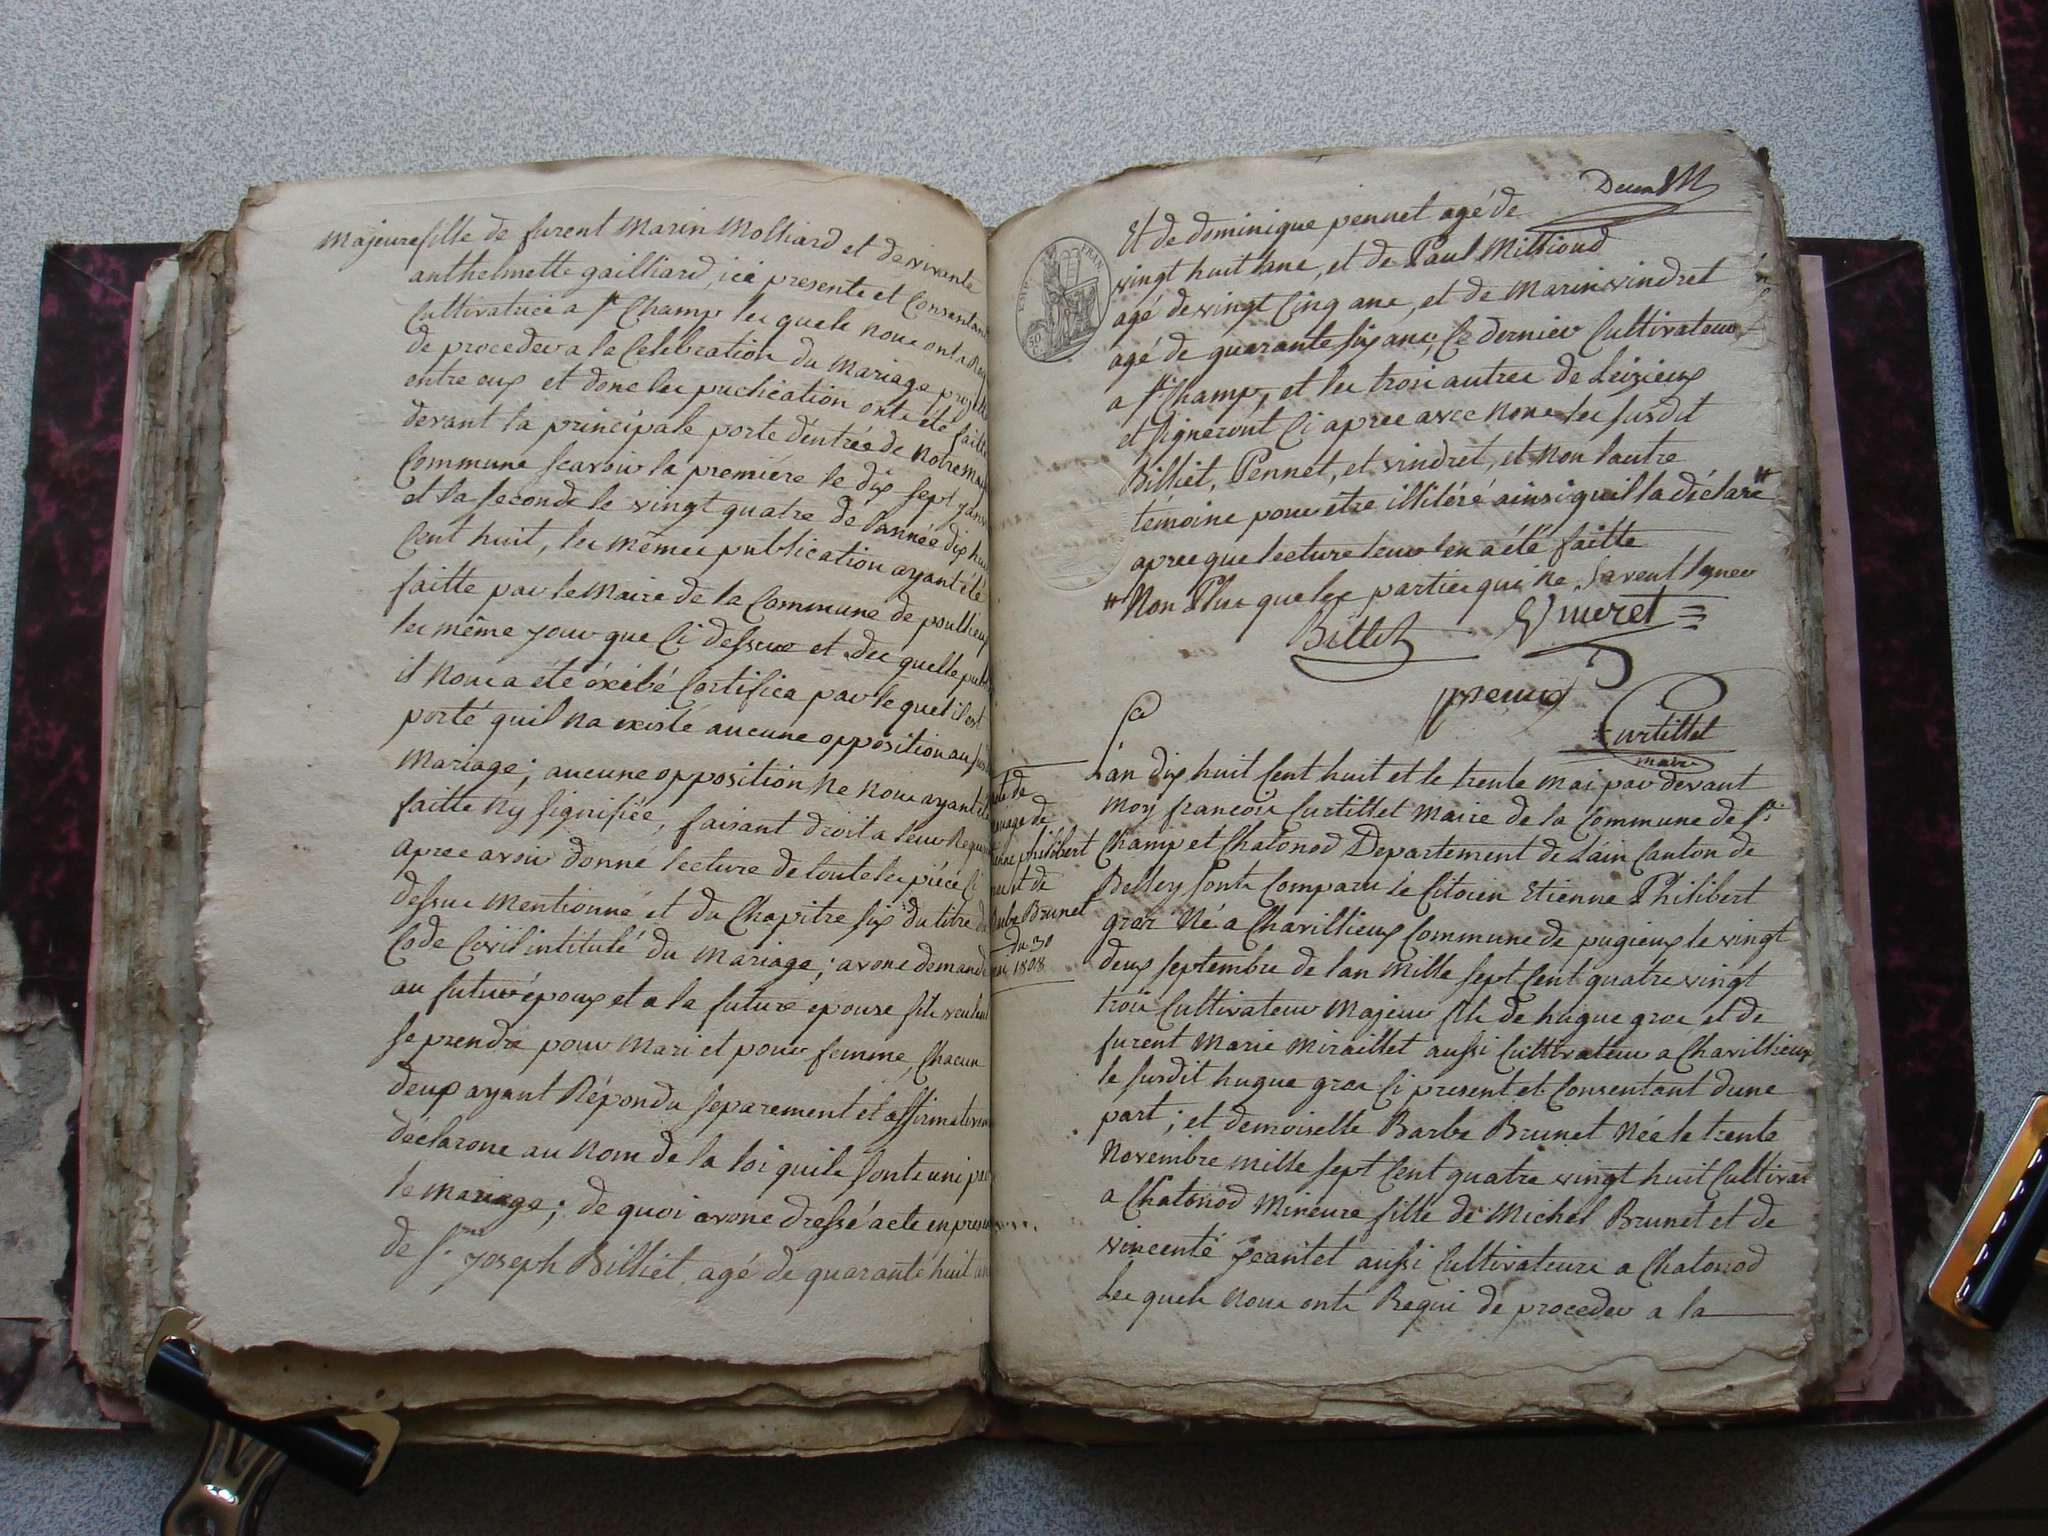 Majeure fille de furent Marin Molliard et de vivante
anthelmette gailliard, icè presente et Consentant
Cultivatrice a St Champ les quels nous ont
de proceder a la Celebration du Mariage projetté
entre eux et donc les publication onts été faitte
devant la principale porte dentrée de notre
Commune scavoir la premiére le dix sept janv
et la seconde le vingt quatre de lannée dix huit
Cent huit, les mêmes publication ayant été
faitte par le Maire de la Commune de poullieux
les même jour que Ci dessus et des quelle publ
il nous a été éxibé Certifica par le quel il est
porté quil na existé aucune opposition au susdit
Mariage; aucune opposition ne nous ayant été
faitte ny signifiée, faisant droit a leur Requi
apres avoir donné lecture de toute les piéce Ci
dessus Mentionné et du Chapitre six du titre du
Code Civil intitulé du Mariage; avons demandé
au futur époux et a la future epouse sils veulent
se prendre pour Mari et pour femme, Chacun
deux ayant Répondu separement et affirmativem
déclarons au Nom de la loi quils sonts uni par
le mariage; de quoi avons dressé acte en presen
de Sr Joseph Billiet, agé de quarante huit an
Et de dominique pennet agé de
vingt huit ans, et de Paul Millioud
agé de vingt Cinq ans, et de Marin vindret
agé de quarante six ans, Ce dernier Cultivateur
a St Champ, et les trois autres de Leizieux
et signeront Ci apres avec nous les susdit
Billiet, Pennet, et vindret, et non lautre
témoins pour etre illitéré ainsi quil la déclaré #
apres que lecture leur en a été faitte
# Non Plus que les parties qui ne Savent signer
Billiet Vindret
Curtillet
maire
acte de
mariage de
philibert
et de
Barbe Brunet
du 30
mai 1808
Lan dix huit Cent huit et le trente Mai par devant
Moy françois Curtillet Maire de la Commune de St
Champ et Chatonod Departement de Lain Canton de
Belley sonts Comparu le Citoien Etienne Philibert
gros Né a Chavillieux Commune de pugieux le vingt
deux septembre de lan Mille sept Cent quatre vingt
trois Cultivateur Majeur fils de hugue gros et de
furent Marie Miraillet aussi Cultivateur a Chavillieux
le susdit hugue gros Ci present et Consentant dune
part; et demoiselle Barbe Brunet Née le trente
Novembre Mille sept Cent quatre vingt huit Cultivat
a Chatonod Mineure fille de Michel Brunet et de
vincente Jeantet aussi Cultivateurs a Chatonod
Les quels Nous onts Requi de proceder a la